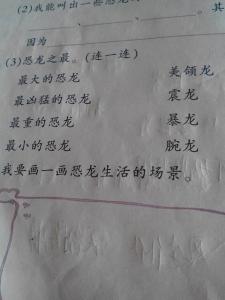 (2)我能叫出一些恐龙
、 、 。其
因为
(3)恐龙之最。(连一连)
最大的恐龙 美颌龙
最凶猛的恐龙 震龙
最重的恐龙 暴龙
最小的恐龙 腕龙
我要画一画恐龙生活的场景。